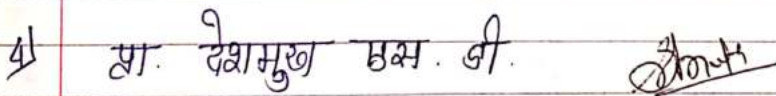 4) प्रा. देशमुख एस. जी.